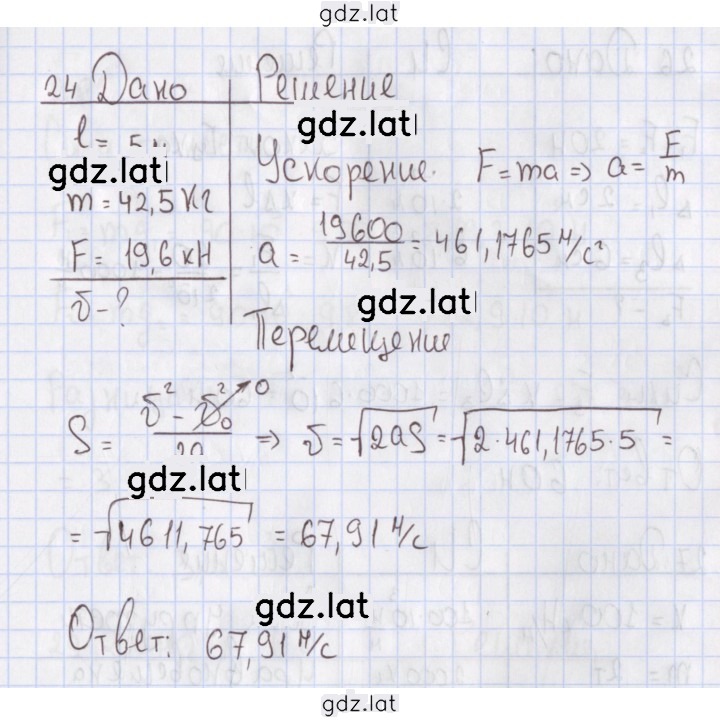 gdz.lat
24 Дано
Решение
l =
gdz.lat
gdz.lat
m = 42,5 Кг
F = 19,6 кН
v - ?
Ускорение. F = ma => a = F/m
a = 19600/42,5 = 461,1765 м/с²
gdz.lat
Перемещение
S = (v² - v₀²)/2a → 0 => v = √2aS = √2·461,1765·5 =
gdz.lat
= √4611,765 = 67,91 м/с
gdz.lat
Ответ: 67,91 м/с
gdz.lat